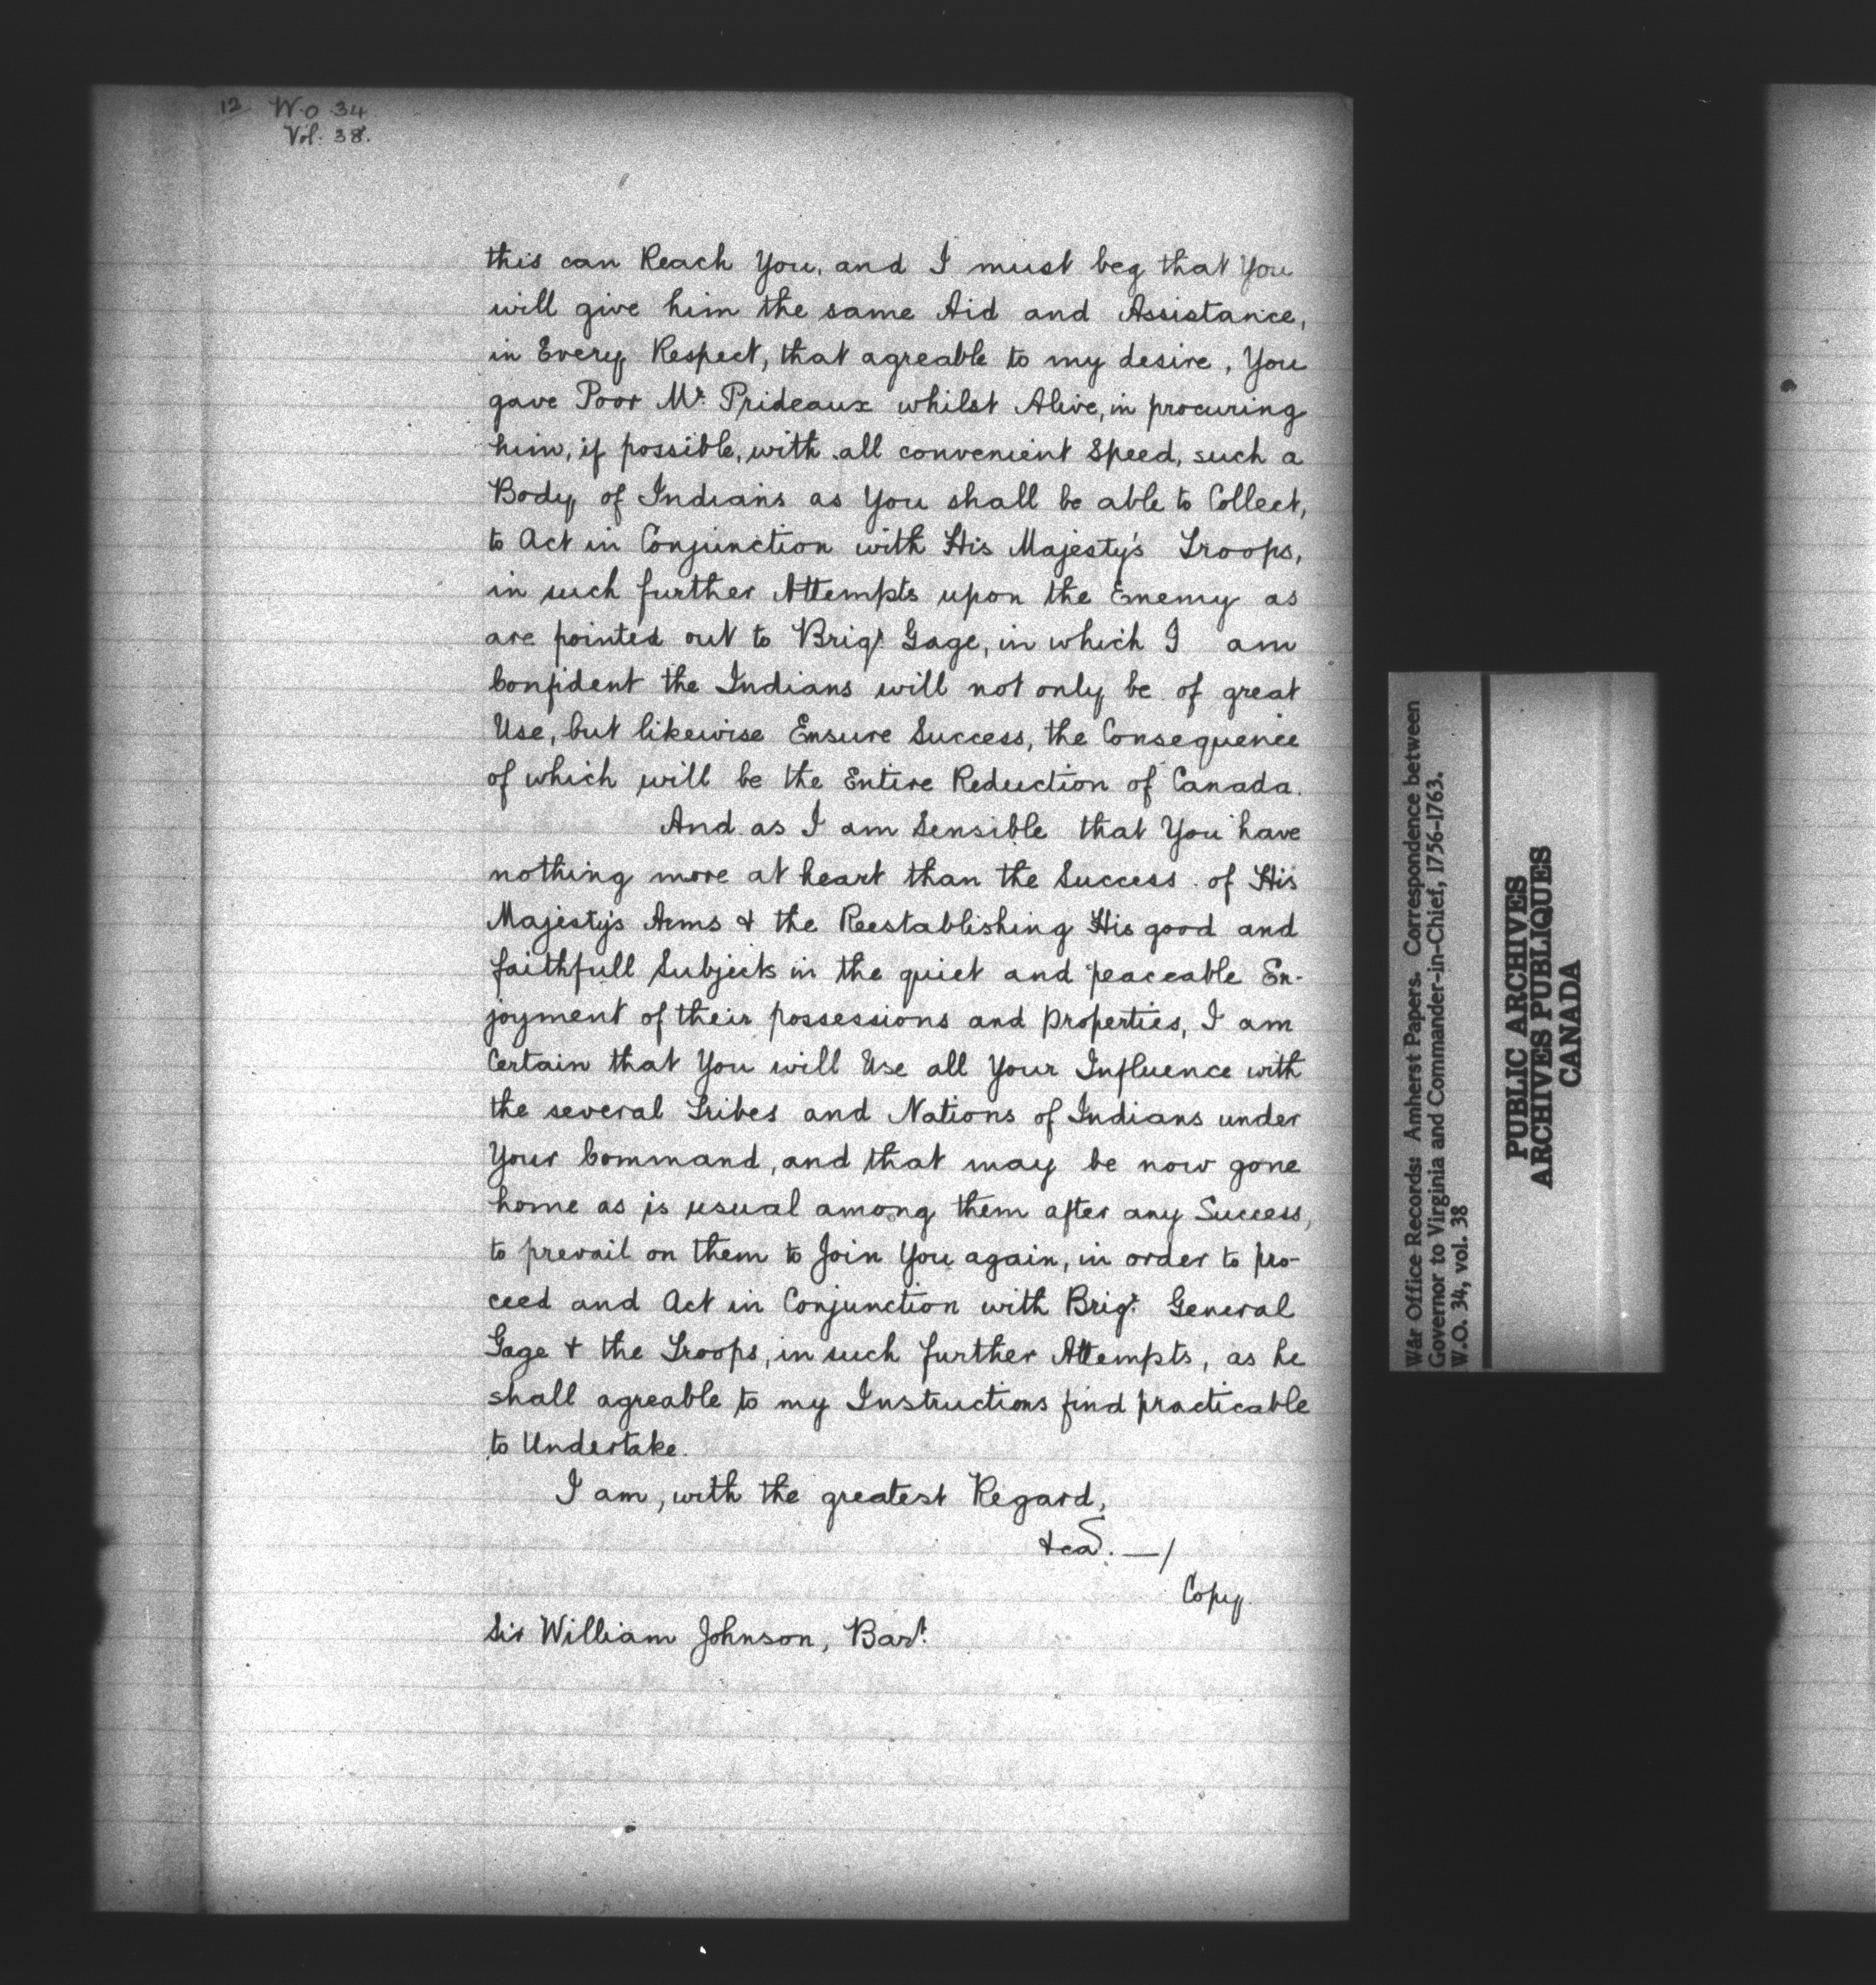 12 W.O 34
Vol: 38.
this can Reach You, and I must beg that You
will give him the same Aid and Assistance,
in Every Respect, that agreable to my desire, You
gave Poor Mr. Prideaux whilst Alive, in procuring
him, if possible, with all convenient Speed, such a
Body of Indians as You shall be able to Collect,
to Act in Conjunction with His Majesty's Troops,
in such further Attempts upon the Enemy as
are pointed out to Brigr. Gage, in which I am
Confident the Indians will not only be of great
Use, but likewise Ensure Success, the Consequence
of which will be the Entire Reduction of Canada.
And as I am Sensible that You have
nothing more at heart than the Success of His
Majesty's Arms & the Reestablishing His good and
faithfull Subjects in the quiet and peaceable En-
joyment of their possessions and properties, I am
Certain that You will Use all Your Influence with
the several Tribes and Nations of Indians under
Your Command, and that may be now gone
home as is usual among them after any Success,
to prevail on them to Join You again, in order to pro-
ceed and Act in Conjunction with Brigr. General
Gage & the Troops, in such further Attempts, as he
shall agreable to my Instructions find practicable
to Undertake.
I am, with the greatest Regard,
&ca. —/
Copy.
Sir William Johnson, Bart.
War Office Records: Amherst Papers. Correspondence between
Governor to Virginia and Commander-in-Chief, 1756-1763.
W.O. 34, vol. 38
PUBLIC ARCHIVES
ARCHIVES PUBLIQUES
CANADA